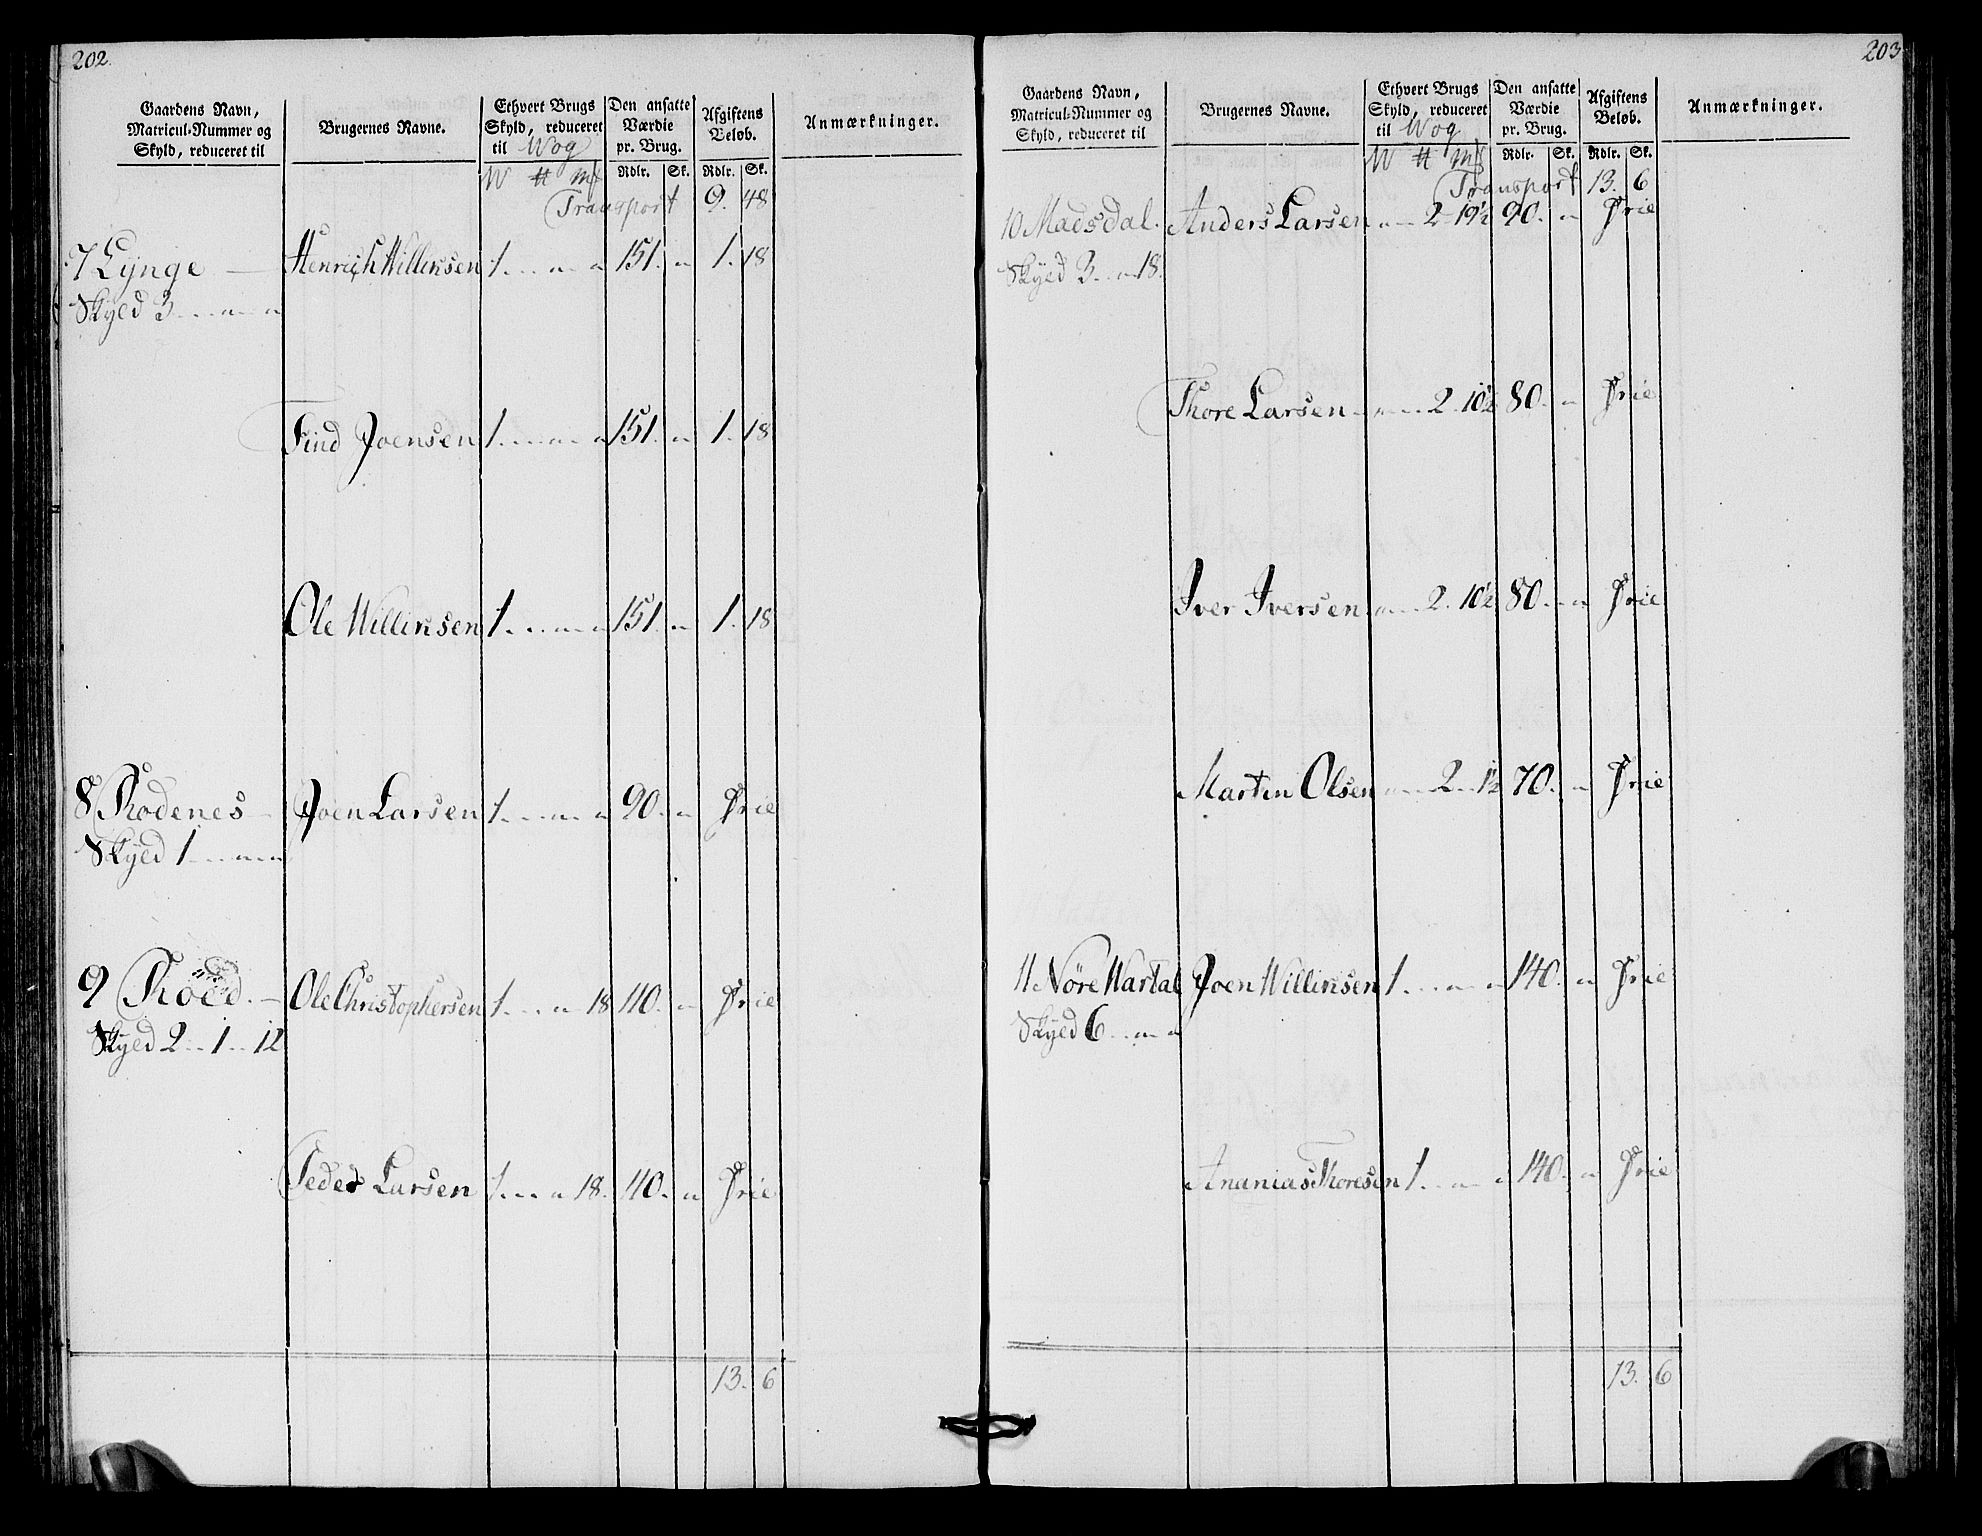 202.
Gaardens Navn, Matricul-Nummer og Skyld, reduceret til
Brugernes Navne.
Ethvert Brugs Skyld, reduceret til Wog
Den ansatte Værdie pr. Brug.
Afgiftens Beløb.
Anmærkninger.
W # Mk Rdlr. Sk. Rdlr. Sk.
Transport 9. 48
7 Lynge — Henrich Willinsen 1 . . . " " 151. " 1. 18
Skyld 3 . . . " "
Find Joensen 1 . . . " " 151. " 1. 18
Ole Willinsen 1 . . . " " 151. " 1. 18
8 Rodenes Joen Larsen 1 . . . " " 90. " Frie
Skyld 1 . . . " "
9 Roed. — Ole Christophersen 1 . . " 18 110. " Frie
Skyld 2 . . 1 . . 12
Peder Larsen 1 . . " 18. 110. " Frie
13. 6
203
Gaardens Navn, Matricul-Nummer og Skyld, reduceret til
Brugernes Navne.
Ethvert Brugs Skyld, reduceret til Wog
Den ansatte Værdie pr. Brug.
Afgiftens Beløb.
Anmærkninger.
W # Mk Rdlr. Sk. Rdlr. Sk.
Transport 13. 6
10 Madsdal. Anders Larsen " 2 19½ 90. " Frie
Skyld 3 . . " 18.
Thore Larsen " 2. 10½ 80. " Frie
Iver Iversen " 2. 10½ 80. " Frie
Martin Olsen " 2 . . 1½ 70. " Frie
11 Nøre Wartal Joen Willinsen 1 . . " " 140. " Frie
Skyld 6 . . " "
Ananias Thoresen 1 . . " " 140. " Frie
13. 6